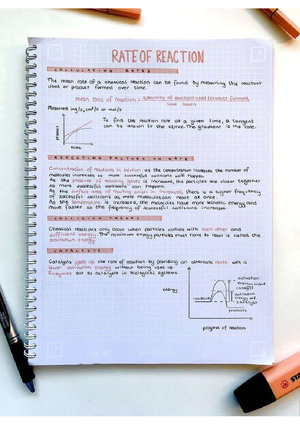 RATE OF REACTION
CALCULATING RATES
The mean rate of a chemical reaction can be found by measuring the reactant
used or product formed over time.
mean rate of reaction = quantity of reactant used / product formed
time taken
Measured in g/s, cm³/s or mol/s
product
time
To find the reaction rate at a given time, a tangent
can be drawn to the curve. The gradient is the rate.
AFFECTING FACTORS ON RATE
Concentration of reactants in solution: as the concentration increases the number of
molecules increases so more successful collisions will happen.
As the pressure of reacting gases is increased, the particles are closer together
so more successful collisions can happen.
As the surface area of reacting solids is increased, there is a higher frequency
of successful collisions as more molecules can react at once.
As the temperature is increased, the molecules have more kinetic energy and
move faster so the frequency of successful collisions increases.
COLLISION THEORY
Chemical reactions only occur when particles collide with each other and
sufficient energy. The minimum energy particles must have to react is called the
activation energy.
CATALYSTS
Catalysts speed up the rate of reaction by providing an alternate route with a
lower activation energy without being used up.
Enzymes act as catalysts in biological systems.
energy
reactants
activation
energy without
catalyst
activation
energy with
catalyst
products
progress of reaction
STA